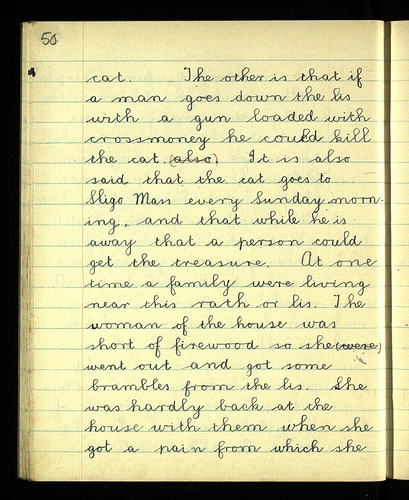 50
cat. The other is that if
a man goes down the lis
with a gun loaded with
crossmoney he could kill
the cat. (also) It is also
said that the cat goes to
Sligo Mass every Sunday morn-
ing, and that while he is
away that a person could
get the treasure. At one
time a family were living
near this rath or lis. The
woman of the house was
short of firewood so she (were)
went out and got some
brambles from the lis. She
was hardly back at the
house with them when she
got a pain from which she